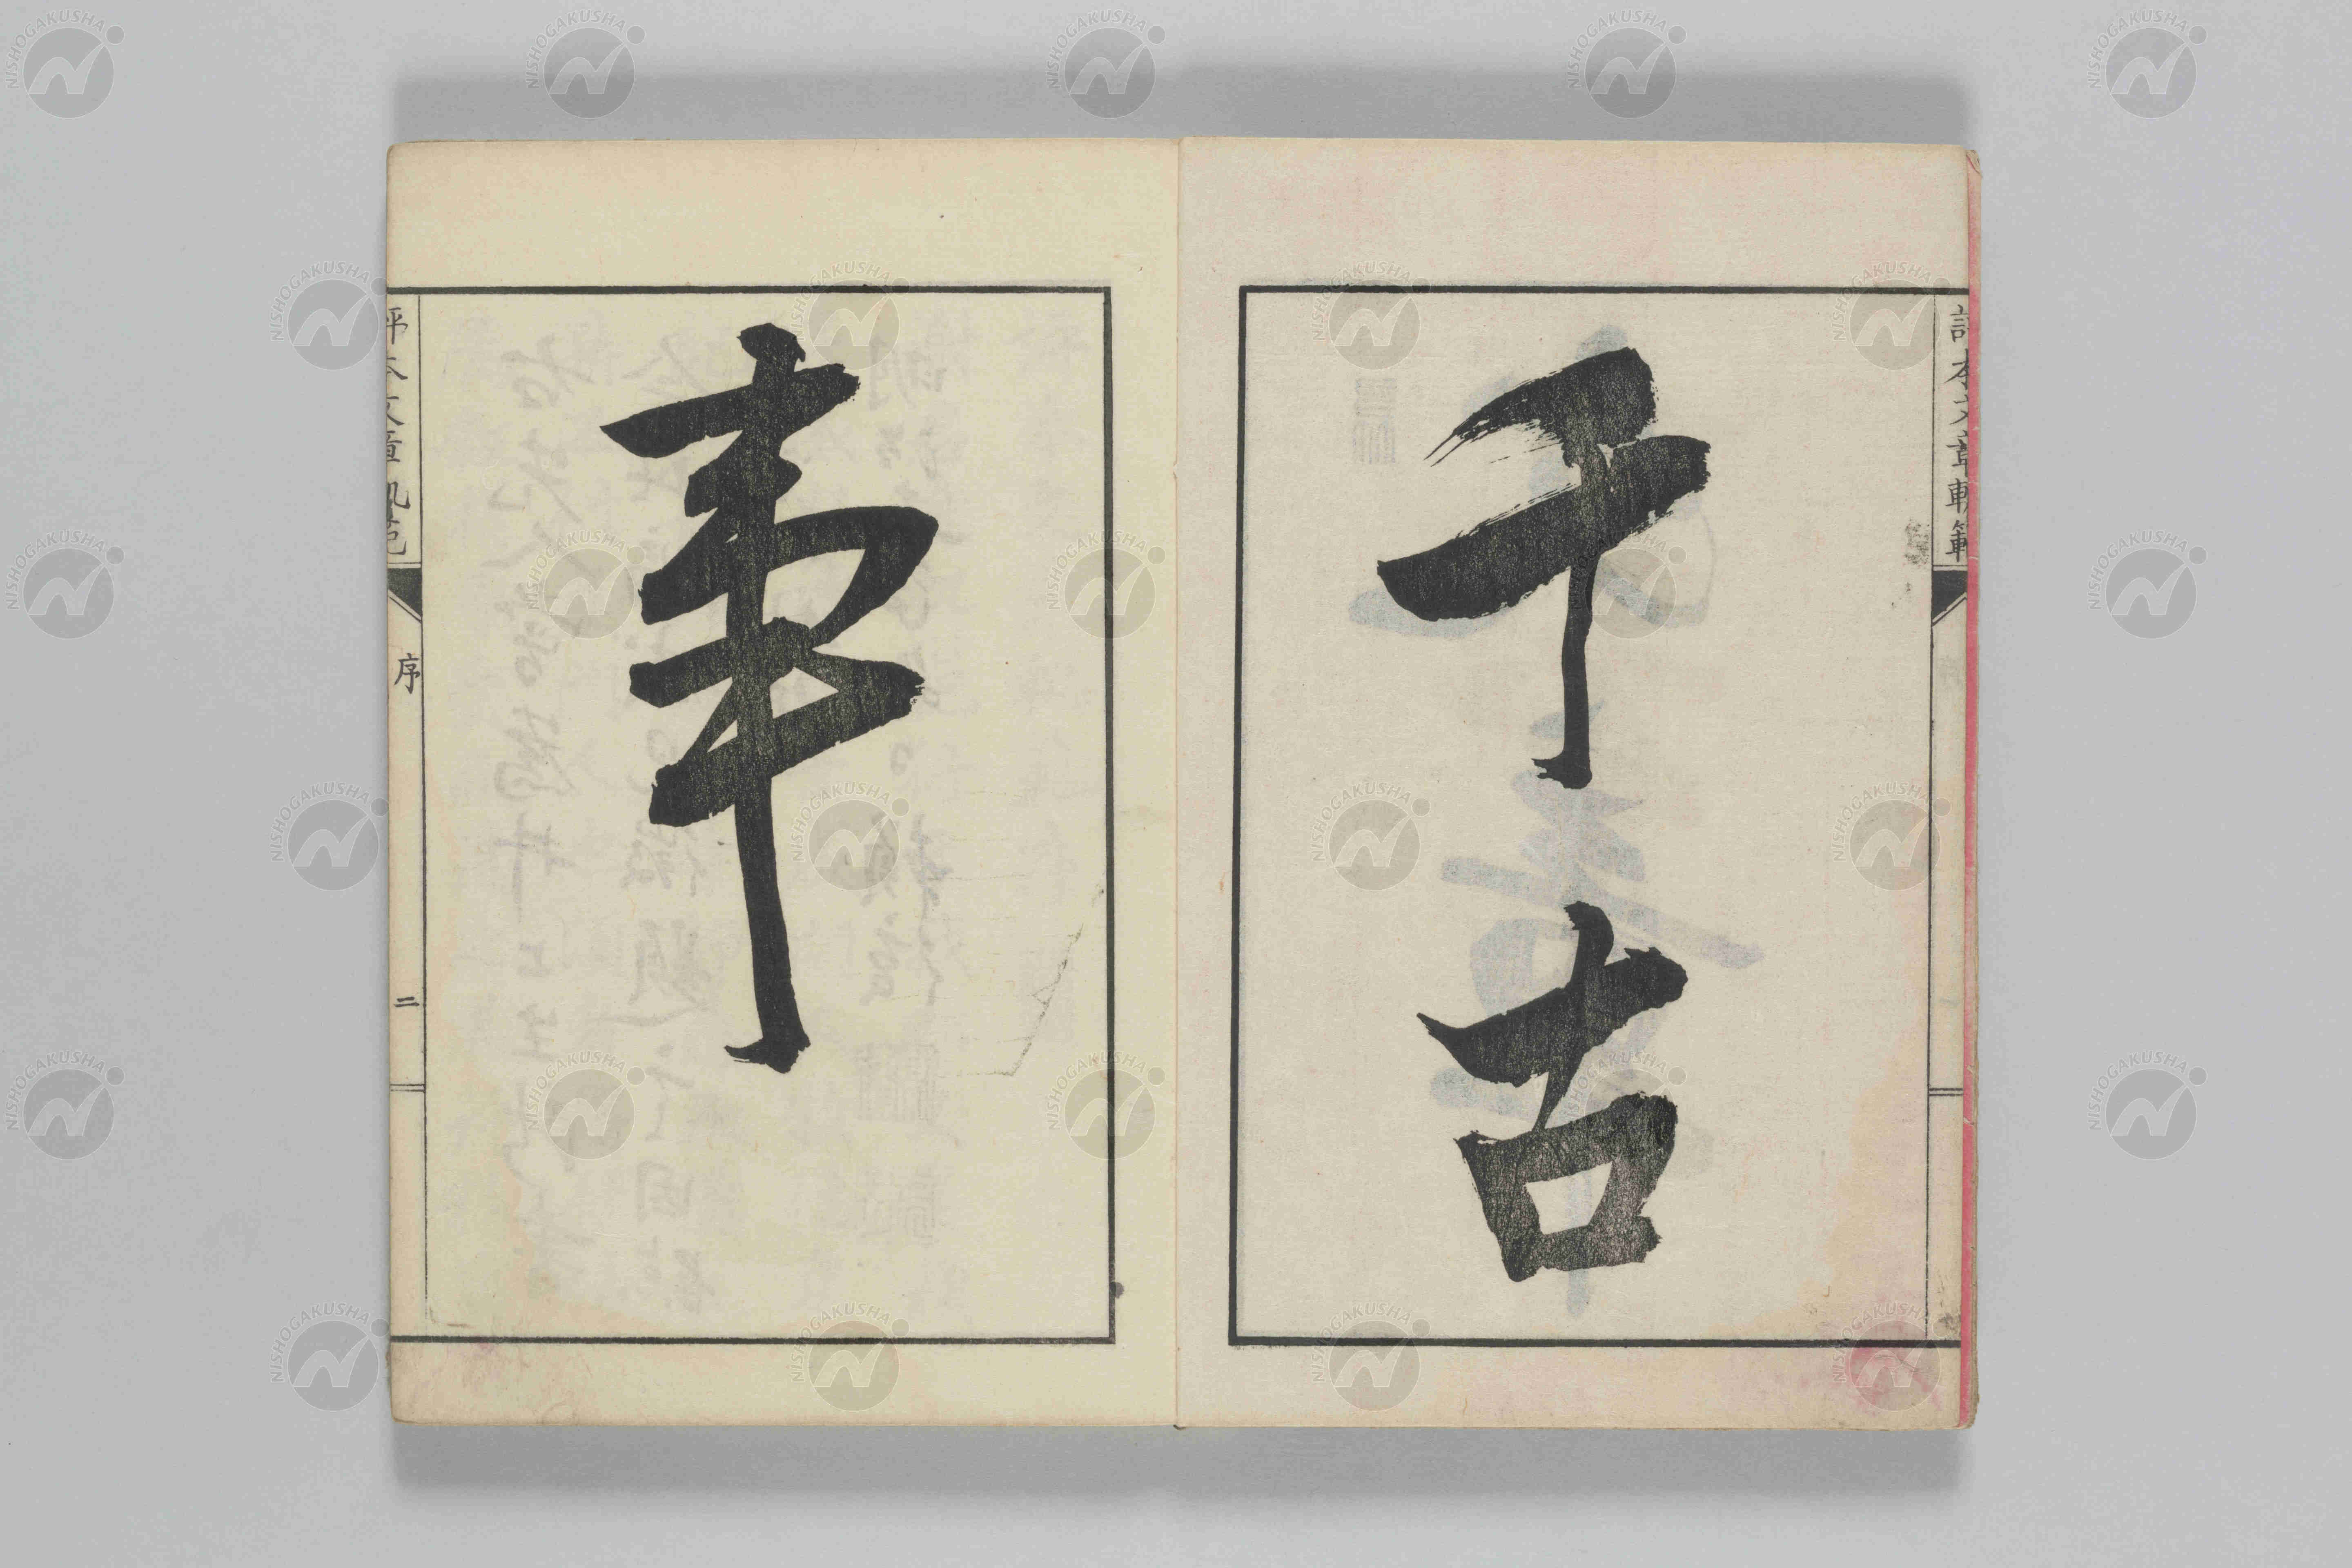 評本文章軌範
千古
事
評本文章軌範
序
二
NISHOGAKUSHA